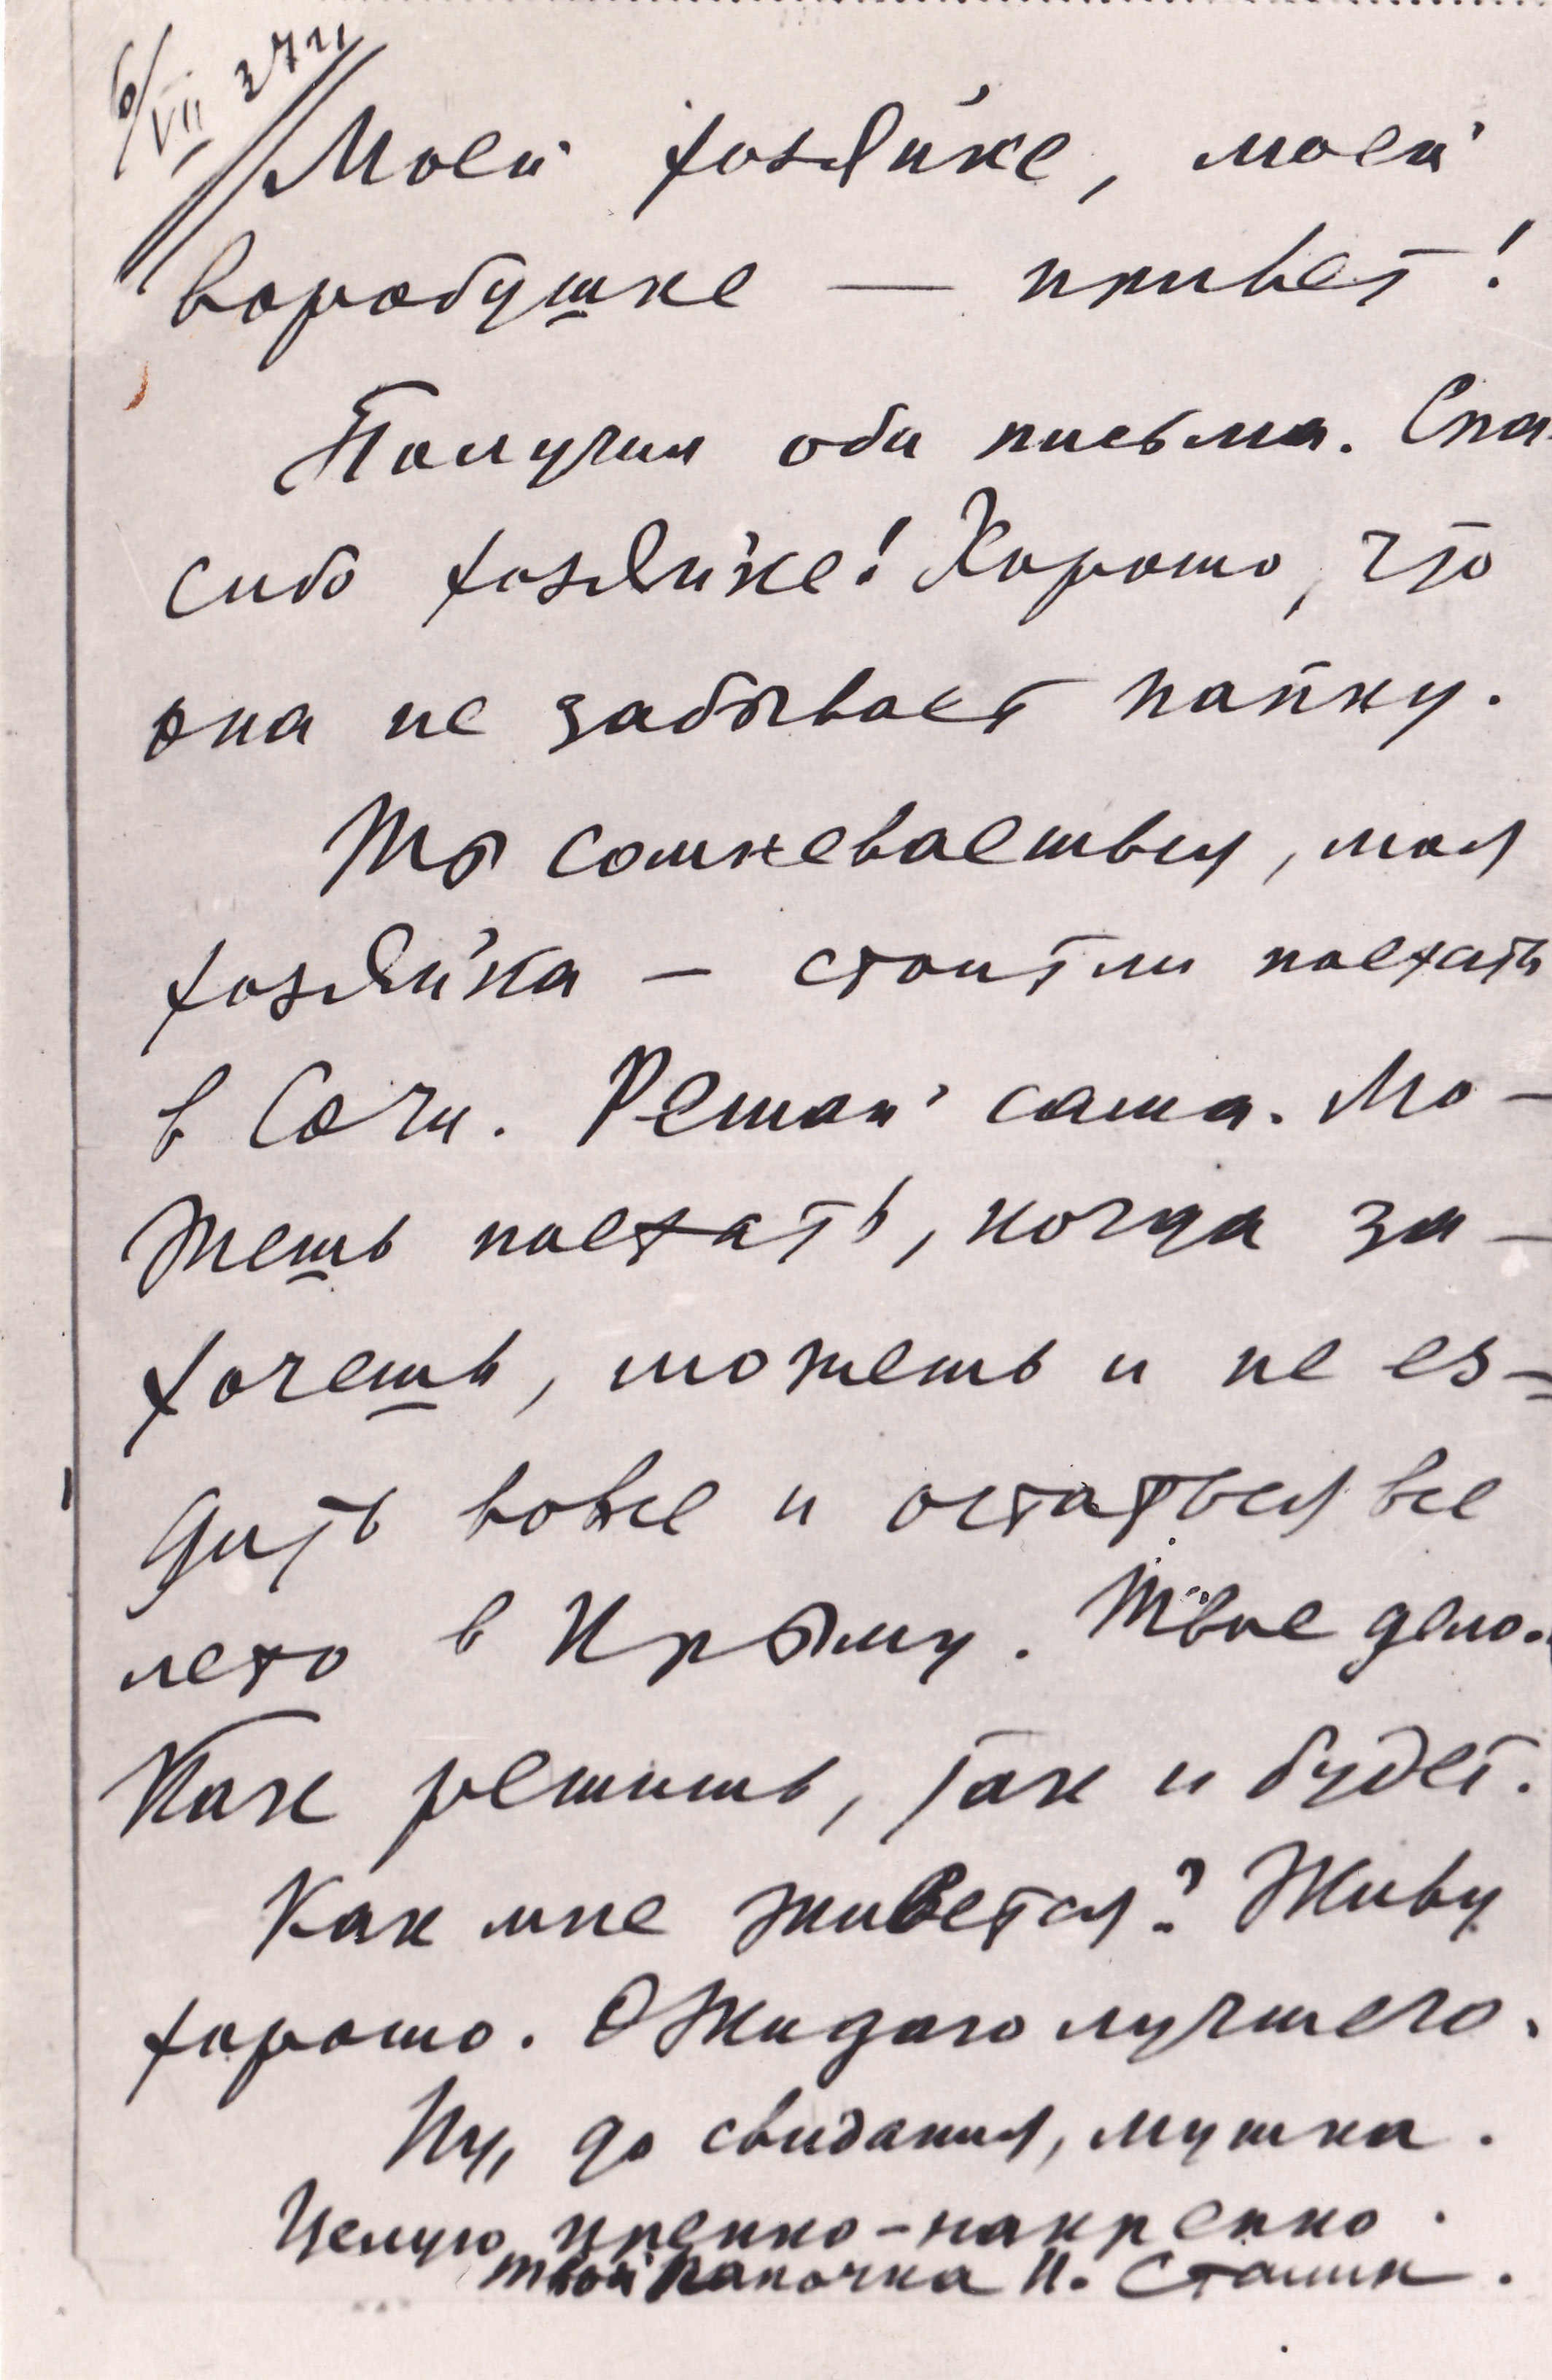 6/VII 37 г.
Моей хозяйке, моей
воробушке — привет!
Получил оба письма. Спа-
сибо хозяйке! Хорошо, что
она не забывает папку.
Ты сомневаешься, моя
хозяйка — стоит ли поехать
в Сочи. Решай сама. Мо-
жешь поехать, когда за-
хочешь, можешь и не ез-
дить вовсе и остаться все
лето в Крыму. Твое дело.
Как решишь, так и будет.
Как мне живется? Живу
хорошо. Ожидаю лучшего.
Ну, до свидания, мушка.
Целую крепко-накрепко.
Твой папочка И. Сталин.